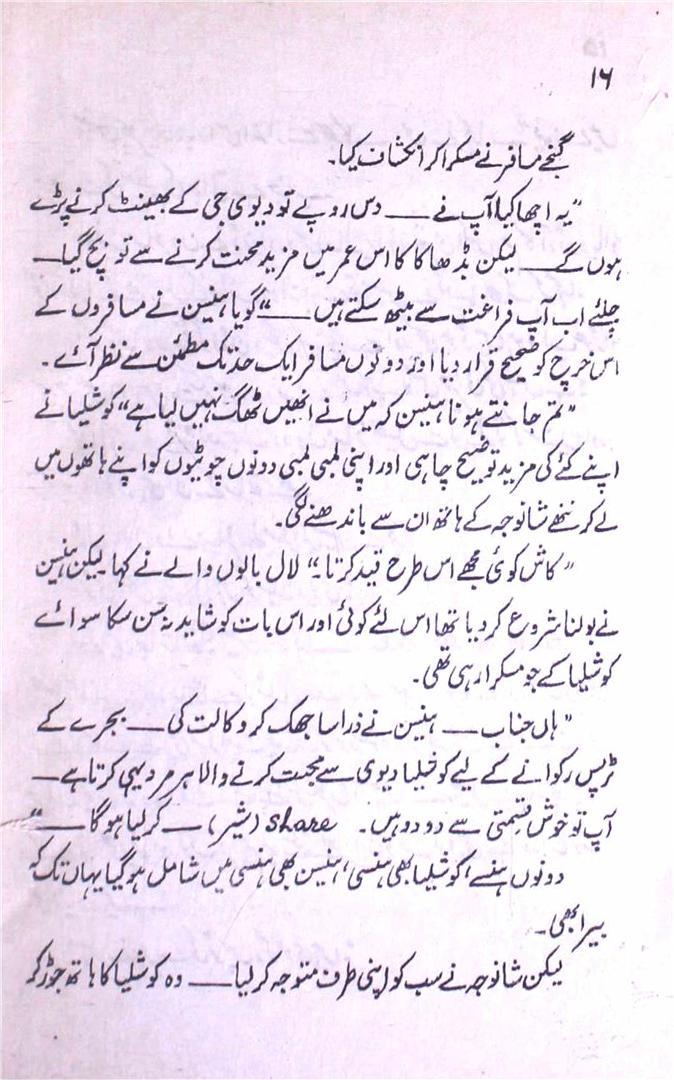 ۱۶
گنجے مسافر نے مسکرا کر انکشاف کیا۔
”یہ اچھا کیا آپ نے —— دس روپے تو دیوی جی کے بھینٹ کرنے پڑے
ہوں گے —— لیکن بڈھا کاکا اس عمر میں مزید محنت کرنے سے تو بچ گیا ——
چلئے اب آپ فراغت سے بیٹھ سکتے ہیں ——“ گویا ہنیسن نے مسافروں کے
اس خرچ کو صحیح قرار دیا اور دونوں مسافر ایک حد تک مطمئن سے نظر آئے۔
”تم جانتے ہو نا ہنیسن کہ میں نے انھیں ٹھگ نہیں لیا ہے“ کوشلیا نے
اپنے کئے کی مزید توضیح چاہی اور اپنی لمبی لمبی دونوں چوٹیوں کو اپنے ہاتھوں میں
لے کر ننھے شانوجہ کے ہاتھ ان سے باندھنے لگی۔
”کاش کوئی مجھے اس طرح قید کرتا۔“ لال بالوں والے نے کہا لیکن ہنیسن
نے بولنا شروع کر دیا تھا اس لئے کوئی اور اس بات کو شاید نہ سن سکا سوائے
کوشلیا کے جو مسکرا رہی تھی۔
”ہاں جناب —— ہنیسن نے ذرا سا جھک کر وکالت کی —— بجرے کے
ٹرپس رکوانے کے لیے کوشیلیا دیوی سے محبت کرنے والا ہر مرد یہی کرتا ہے ——
آپ تو خوش قسمتی سے دو دو ہیں۔ share (شیر) —— کر لیا ہوگا ——“
دونوں ہنسے، کوشلیا بھی ہنسی، ہنیسن بھی ہنسی میں شامل ہو گیا یہاں تک کہ
بیرا بھی۔
لیکن شانوجہ نے سب کو اپنی طرف متوجہ کر لیا —— وہ کوشلیا کا ہاتھ جوڑ کر